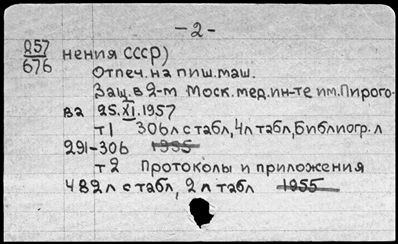 — 2 -
257
676
нения СССР)
Отпеч. на пиш. маш.
Защ. в 2-м Моск. мед. ин-те им. Пирого-
ва 25.XI.1957
т1 306л с табл, 4л табл, Библиогр. л
291-306 1955
т2 Протоколы и приложения
482л с табл, 2л табл 1955